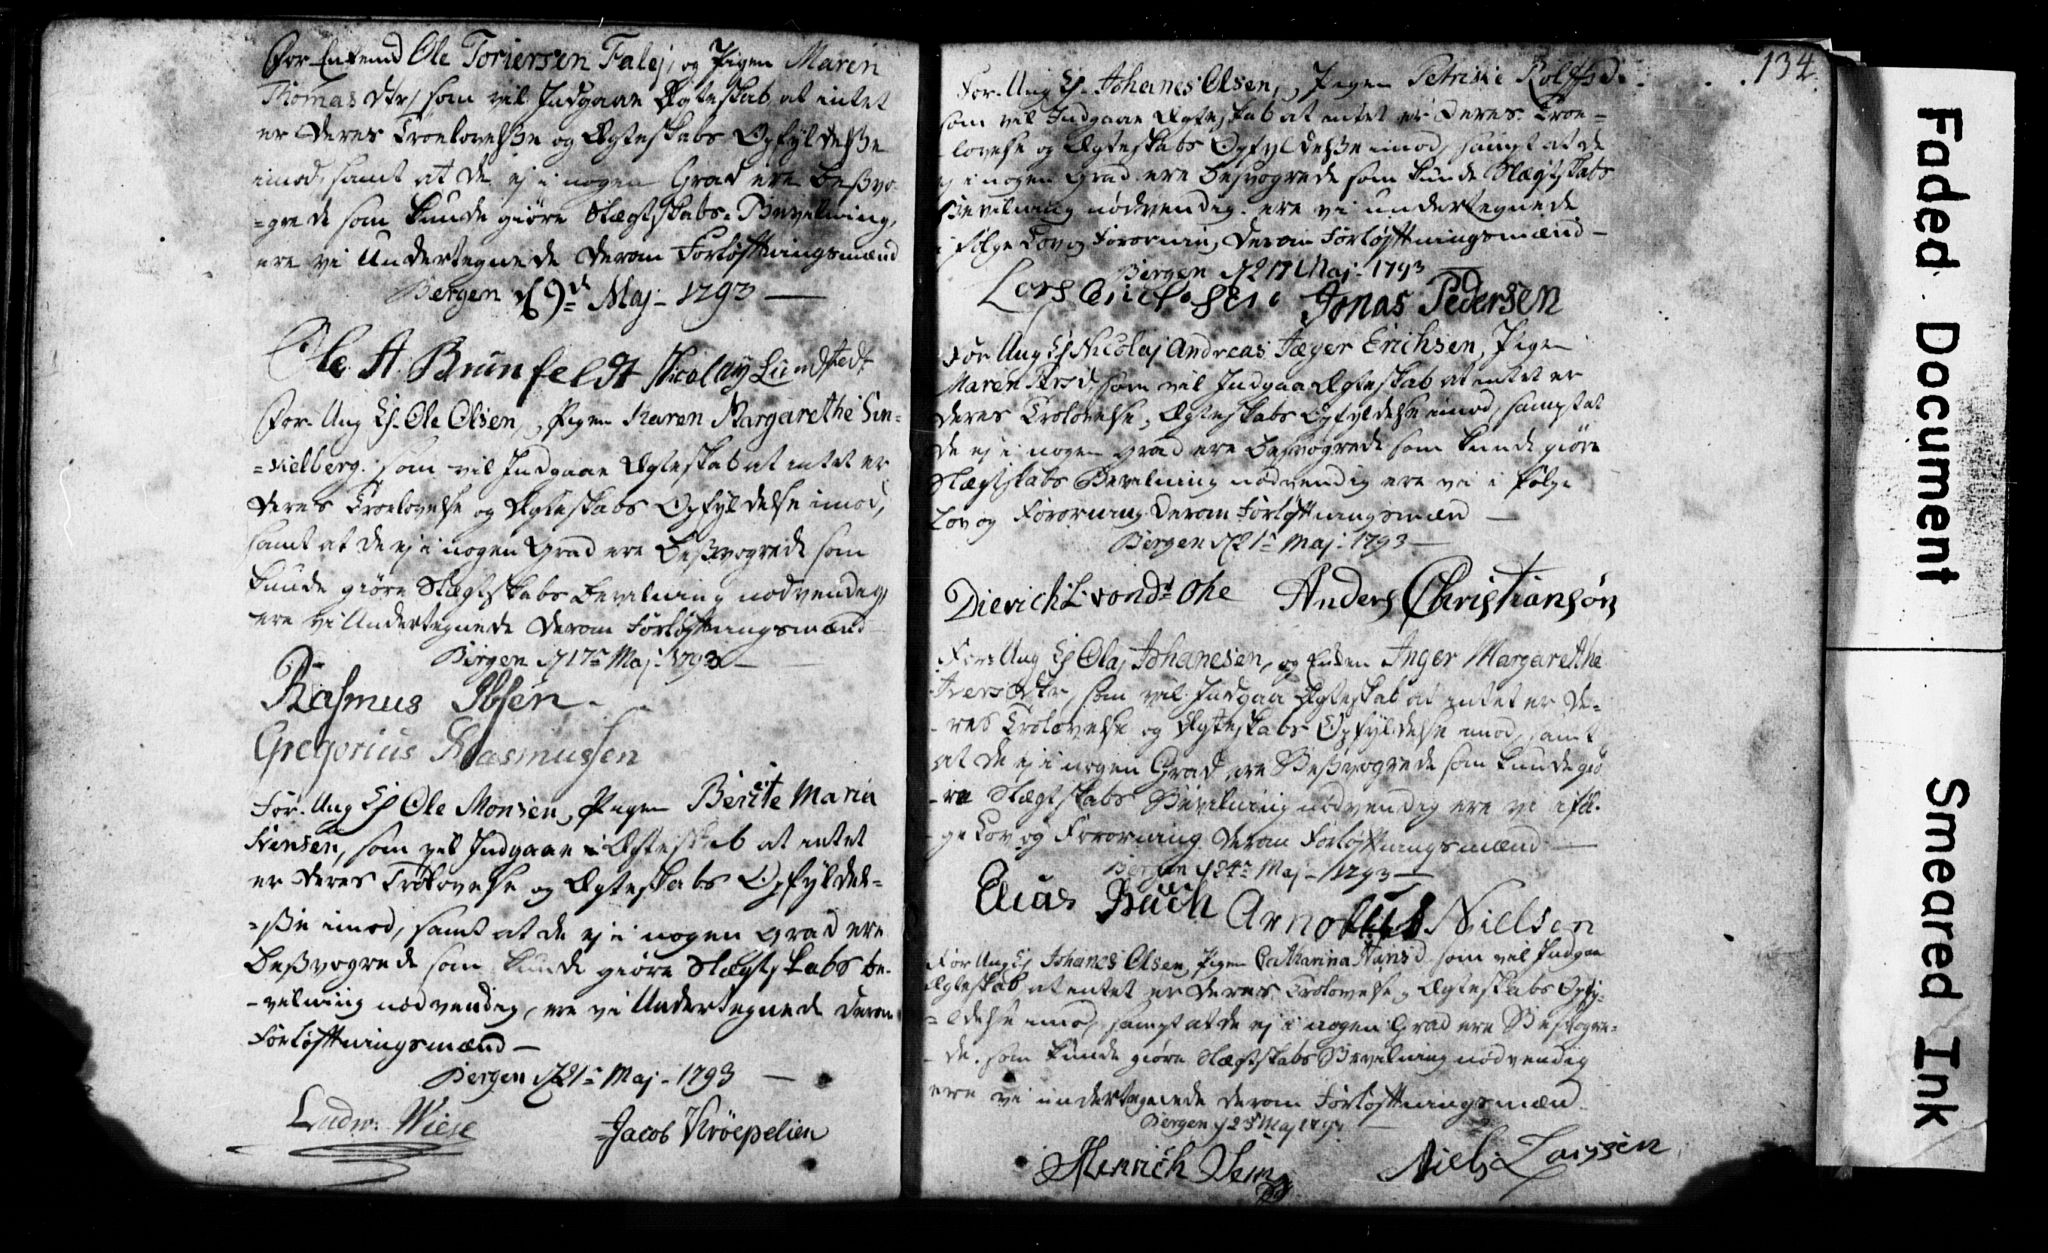 For Enkemd Ole Toriersen Falej, og Pigen Maren
Thomas dtr, som vil Indgaae Ægteskab, at intet
er deres Troelovelse og Ægteskabs Opfyldelse
imod, samt at de ej i nogen Grad ere besvo-
=grede som kunde giöre Slægtskabs-Bevilning,
ere vi Undertegnede derom Forløftningsmænd
Bergen d 9d Maj 1793
Ole A. Brunfeldt Nicolay Lundstedt
For Ung K. Ole Olsen, Pigen Karen Margarethe Fin-
=kielberg som vil Indgaae Ægteskab at intet er
deres Troelovelse og Ægteskabs Opfyldelse imod,
samt at de ej i nogen Grad ere Besvogrede som
kunde giöre Slægtskabs bevilning nödvendig
ere vi Undertegnede derom Forløftningsmænd
Bergen d 17 Maj 1793
Rasmus Ibsen
Gregorius Rasmussen
For Ung K Ole Monsen, Pigen Berite Maria
Hensen, som vil Indgaae i Ægteskab at intet
er deres Trolovelse og Ægteskabs Opfyldel=
=se imod, samt at de ej i nogen grad ere
Besvogrede som kunde giöre Slægtskabs be-
-vilning nødvendig, ere vi Undertegnede derom
Forløftningsmænd
Bergen d 21 Maj 1793
Ludw: Wiese Jacob Kröepelien
134.
For Ung K. Johanes Olsen, Pigen Petrike Rolfsd.
som vil Indgaae Ægteskab at intet er deres Troe=
lovelse og Ægteskabs Opfyldelse imod, sampt at de
ej i nogen Grad ere besvogrede som kunde Slægtskabs
Bevilning nødvendig ere vi undertegnede
i følge Lov og Forordning derom Forløftningsmænd
Bergen d 17 Maj 1793
Jonas Pedersen
For Ung K Nicolaj Andreas Jæger Erichsen, Pigen
Maren som vil Indgaa Ægteskab at intet er
deres Trolovelse, Ægteskabs Opfyldelse imod, sampt at
de ej i nogen grad ere besvogrede som kunde giöre
Slægtskabs Bevilning nødvendig ere vi i følge
Lov og Forordning derom Forløftningsmænd
Bergen d 21 Maj 1793
Dierich L. vond Ohe Anders Christiansøn
For Ung K Olaj Johanesen, og Enken Inger Margarethe
Iversdtr, som vil Indgaa Ægteskab at intet er de=
-res Trolovelse og Ægteskabs Opfyldelse imod, samt
at de ej i nogen Grad ere Besvogrede som kunde giö
-re Slægtskabs Bevilning nødvendig ere vi iföl-
-ge Lov og Forordning derom Forløftningsmænd
Bergen d 24 Maj 1793
Elias Buch Arnoldus Nielsen
For Ung K Johanes Olsen, Pigen Catharina Hansd. som vil Indgaa
Ægteskab at intet er deres Trolovelse, Ægteskabs Opfy=
=ldelse imod, sampt at de ej i nogen Grad ere Besvogre=
-de som kunde giöre Slægtskabs Bevilning nødvendig
ere vi undertegnede derom Forløftningsmænd
Bergen d 25 Maj 1793
Henrich Niels Larssen
Faded Document
Smeared Ink